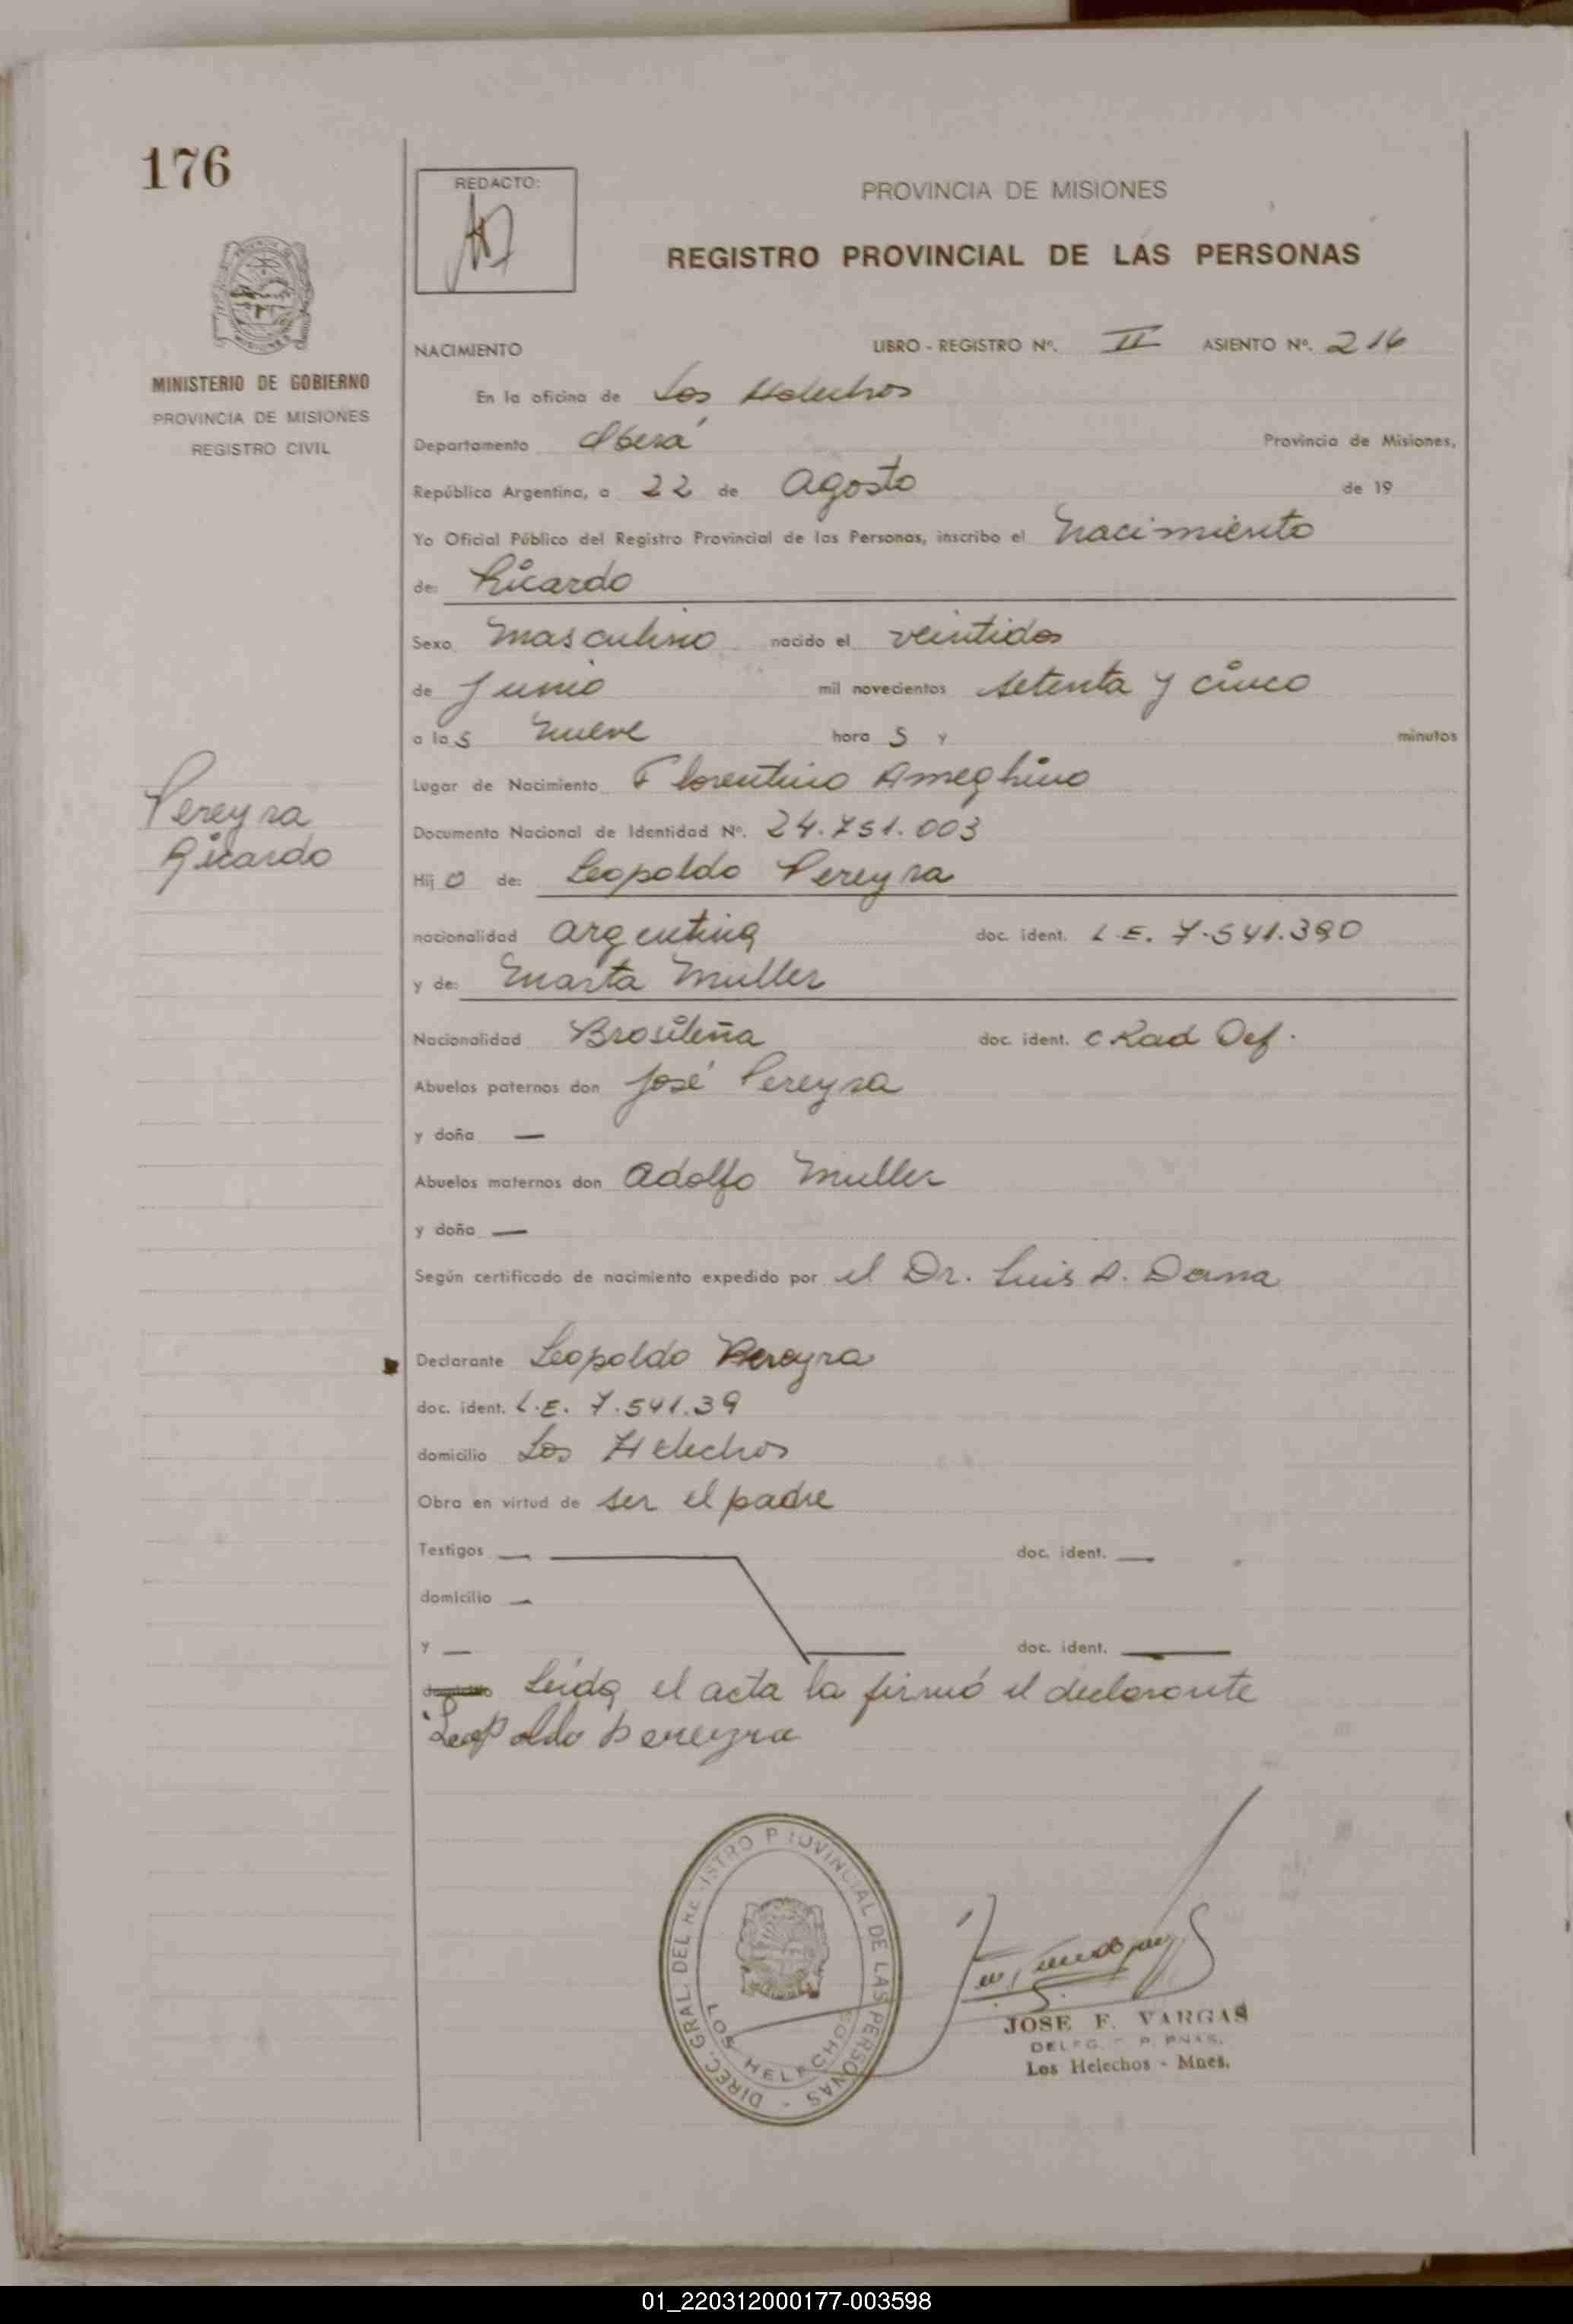 176
REDACTO:
PROVINCIA DE MISIONES
REGISTRO PROVINCIAL DE LAS PERSONAS
MINISTERIO DE GOBIERNO
PROVINCIA DE MISIONES
REGISTRO CIVIL
NACIMIENTO LIBRO - REGISTRO Nº. II ASIENTO Nº. 216
En la oficina de Los Helechos
Departamento Oberá Provincia de Misiones,
República Argentina, a 22 de Agosto de 19
Yo Oficial Público del Registro Provincial de las Personas, inscribo el Nacimiento
de: Ricardo
Sexo Masculino nacido el veintidos
de Junio mil novecientos setenta y cinco
a las nueve horas y minutos
Lugar de Nacimiento Florentino Ameghino
Pereyra
Ricardo
Documento Nacional de Identidad Nº. 24.751.003
Hijo de: Leopoldo Pereyra
nacionalidad argentina doc. ident. L.E. 7.541.390
y de: Marta Muller
Nacionalidad Brasileña doc. ident. C Rad Def.
Abuelos paternos don José Pereyra
y doña —
Abuelos maternos don Adolfo Muller
y doña —
Según certificado de nacimiento expedido por el Dr. Luis A.
Declarante Leopoldo Pereyra
doc. ident. L.E. 7.541.39
domicilio Los Helechos
Obra en virtud de ser el padre
Testigos — doc. ident. —
domicilio —
y — doc. ident. —
Leida el acta la firmó el declarante
Leopoldo Pereyra
DIREC. GRAL. DEL REGISTRO PROVINCIAL DE LAS PERSONAS -
LOS HELECHOS
JOSE F. VARGAS
Los Helechos - Mnes.
01_220312000177-003598